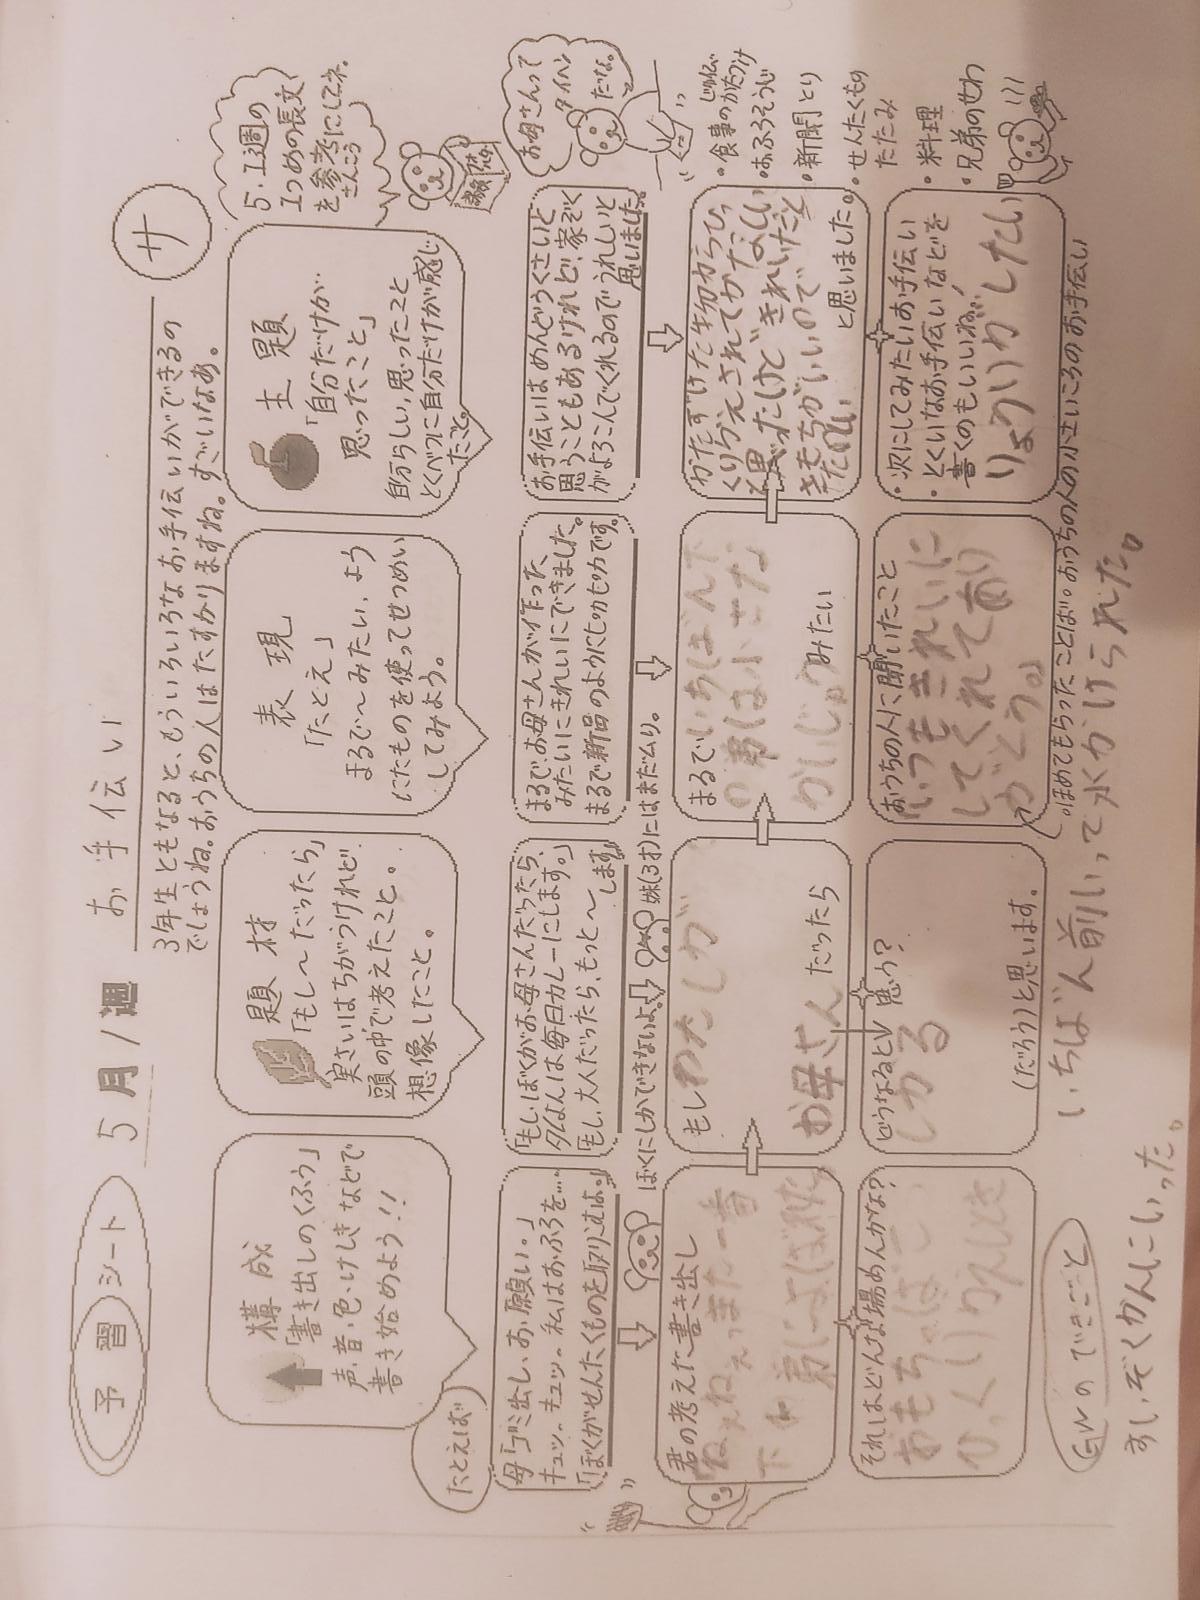 予習シート
5月1週
お手伝い
サ
3年生ともなると、もういろいろなお手伝いができるの
でしょうね。おうちの人はたすかりますね。すごいなあ。
5.1週の
1つめの長文
を参考にしてネ。
さんこう
構成
「書き出しのくふう」
声・音・色・けしきなどで
書き始めよう!!
題材
「もし〜だったら」
実さいはちがうけれど
頭の中で考えたこと。
想像したこと。
表現
「たとえ」
まるで〜みたい、よう
にたものを使ってせつめい
してみよう。
主題
「自分だけが
思ったこと」
自分らしい、思ったこと
とくべつに自分だけが感じ
たこと。
たとえば
母「ゴミ出し、お願い。」
キュッ、キュッ。私はおふろを…
「ぼくがせんたくものを取りこむよ。」
「もし、ぼくがお母さんだったら、
夕はんは毎日カレーにします。」
「もし、大人だったら、もっと〜します」
まるで、お母さんが作った
みたいにきれいにできました。
まるで新品のようにピカピカです。
お手伝いはめんどうくさいと
思うこともあるけれど、家ぞく
がよろこんでくれるのでうれしいと
思いました。
お母さんって
タイヘン
だな。
ぼくにしかできないよ。
妹(3才)にはまだムリ。
君の考えた書き出し
ねぇねぇっまた一番
下の弟によばれた。
もしわたしが
お母さんだったら
まるでいちばん下
の弟は小さな
かいじゅうみたい
かたずけた物からひっ
くりかえされてかなしい
と思ったけどきれいだと
きもちがいいので
と思いました。
・食事のかたづけ
・おふろそうじ
・新聞とり
・せんたくもの
たたみ
・料理
・兄弟のせわ
それはどんな場めんかな?
おもちゃばこ
ひっくりかえしとき
どうなると思う?
しかる
(だろう)と思います。
おうちの人に聞いたこと
「いつもきれいに
してくれてあり
がとう。」
・次にしてみたいお手伝い
・とくいなお手伝いなどを
書くのもいいね。
りょうりがしたい
。ほめてもらったことば。おうちの人の小さいころのお手伝い
GWのできごと
すいぞくかんにいった。
いちばん前いって水かけられた。